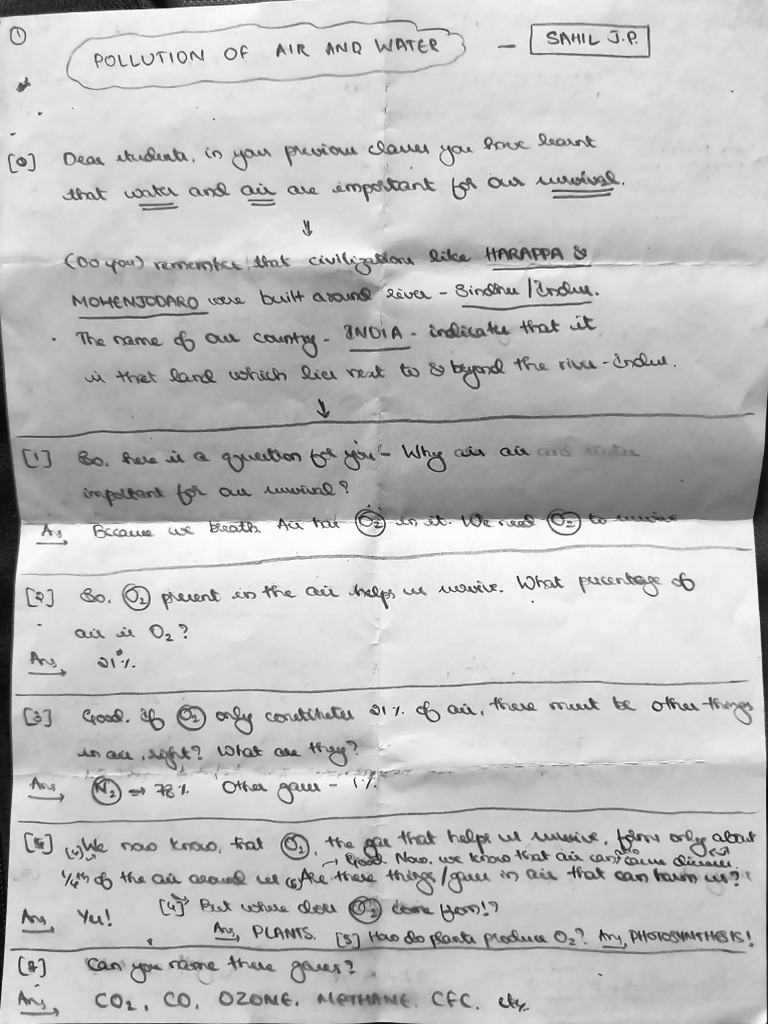 1
POLLUTION OF AIR AND WATER - SAHIL J.P.
[0] Dear students, in your previous classes you have learnt
that water and air are important for our survival.
↓
(Do you) remember that civilizations like HARAPPA &
MOHENJODARO were built around river - Sindhu / Indus.
· The name of our country - INDIA - indicates that it
is that land which lies next to & beyond the river - Indus.
↓
[1] So, here is a question for you - Why air and water
important for our survival?
Ans Because we breath. Air has O₂ in it. We need O₂ to survive
[2] So, O₂ present in the air helps us survive. What percentage of
air is O₂?
Ans 21%.
[3] Good. If O₂ only constitutes 21% of air, there must be other things
in air, right? What are they?
Ans N₂ → 78% Other gases - 1%
[6] We now know, that O₂, the gas that helps us survive, forms only about
→ Good. Now, we know that air can also cause diseases.
1/5th of the air around us (6) Are there things/gases in air that can harm us?
Ans Yes! [4] But where does O₂ come from!?
Ans, PLANTS. [5] How do plants produce O₂? Ans, PHOTOSYNTHESIS!
[7] Can you name these gases?
Ans CO₂, CO, OZONE, METHANE, CFC, etc,